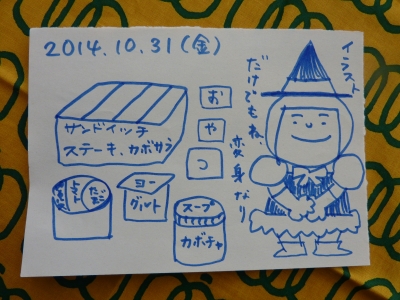 2014.10.31(金)
サンドイッチ
ステーキ、カボサラ
お
や
つ
ヨー
グルト
スープ
カボチャ
イラスト
だけでもね、
変身なり